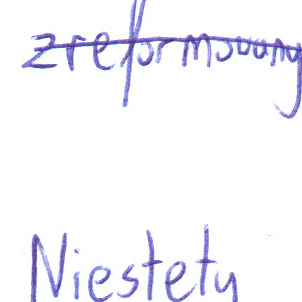 zreformowany
Niestety